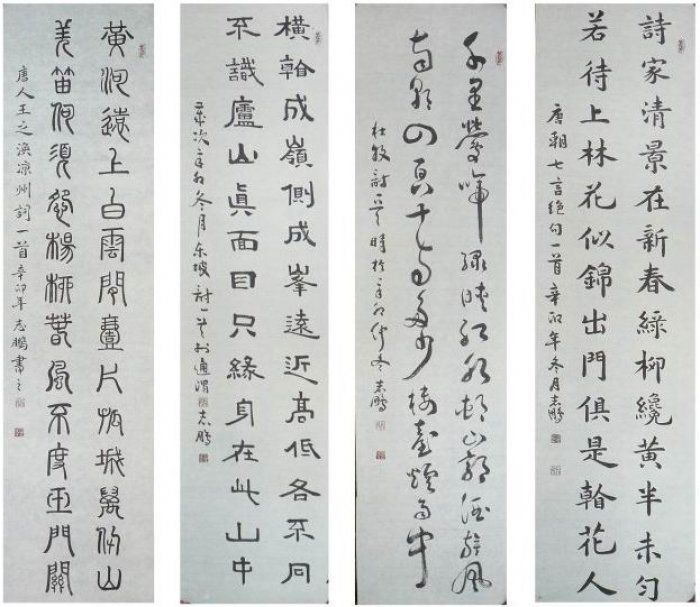 詩家清景在新春綠柳纔黃半未勻
若待上林花似錦出門俱是看花人
唐朝七言绝句一首辛卯年冬月志鵬
千里鶯啼綠映紅水村山郭酒旗風
南朝四百八十寺多少樓臺煙雨中
杜牧詩一首時於辛卯年冬志鵬
橫看成嶺側成峯遠近高低各不同
不識廬山眞面目只緣身在此山中
歲次辛卯冬月东坡詩一首於通渭志鵬
黃河遠上白雲間壹片孤城萬仞山
羌笛何須怨楊柳春風不度玉門關
唐人王之渙凉州詞一首辛卯年志鵬書之